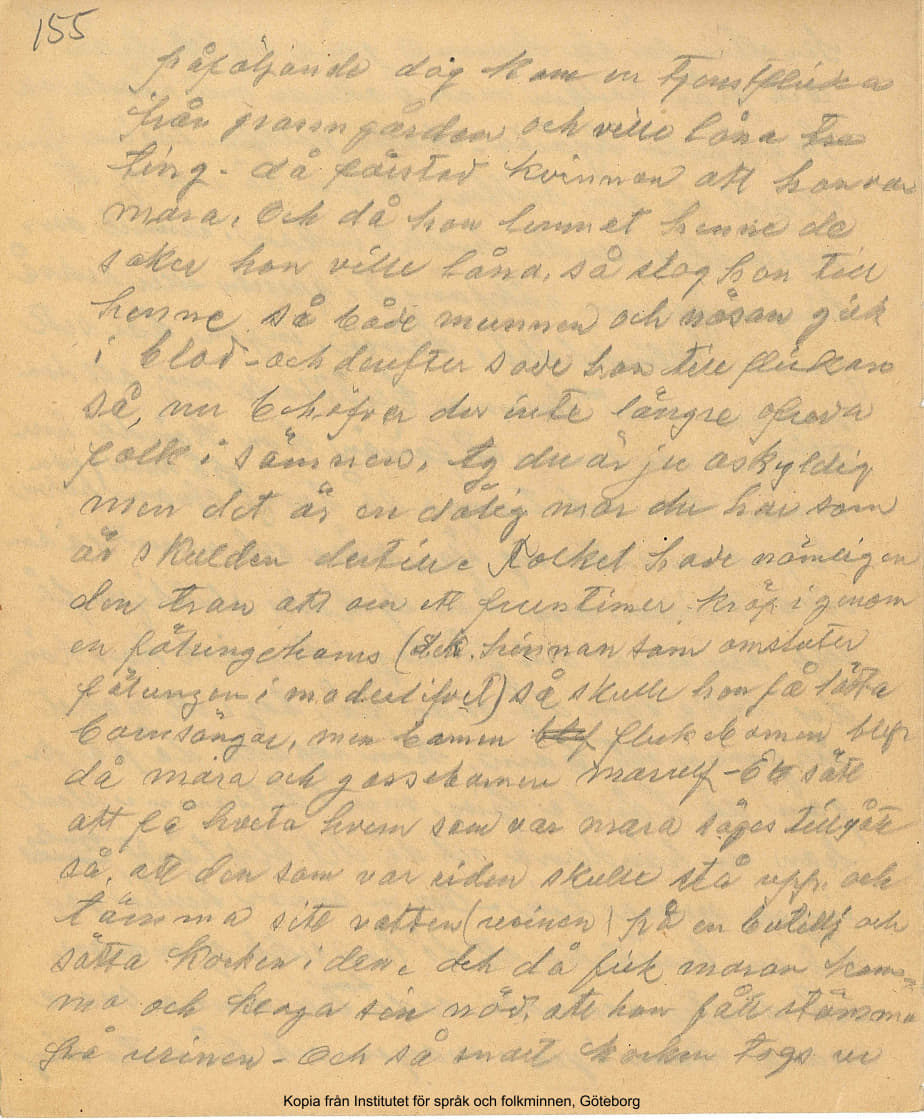 155
påföljande dag kom en Tjenstflicka
från granngården och ville låna tre
ting - då förstod kvinnan att hon var
mara. Och då hon lemnet henne de
saker hon ville låna, så slog hon till
henne så både munnen och näsan gick
i blod - och derefter sade hon till flickan
så, nu behöfver du inte längre
folk i sömnen, ty du är ju oskyldig
men det är en dålig mor du har som
är skulden dertill. Folket hade nämligen
den tron att om ett fruntimer kröp igenom
en fölungehams (hinnan som omsluter
fölungen i moderlifvet) så skulle hon få lätta
barnsängar, men barnen flickebarnen blef
då mara och gossebarnen marulf - Ett sätt
att få hveta hvem som var mara säges tillgåt
så, att den som var riden skulle stå upp och
tämma sitt vatten (urinen) på en butillj och
sätta korken i den. och då fick maran kom
ma och klaga sin nöd, att hon fått stämma
på urinen - Och så snart korken togs ur
Kopia från Institutet för språk och folkminnen, Göteborg